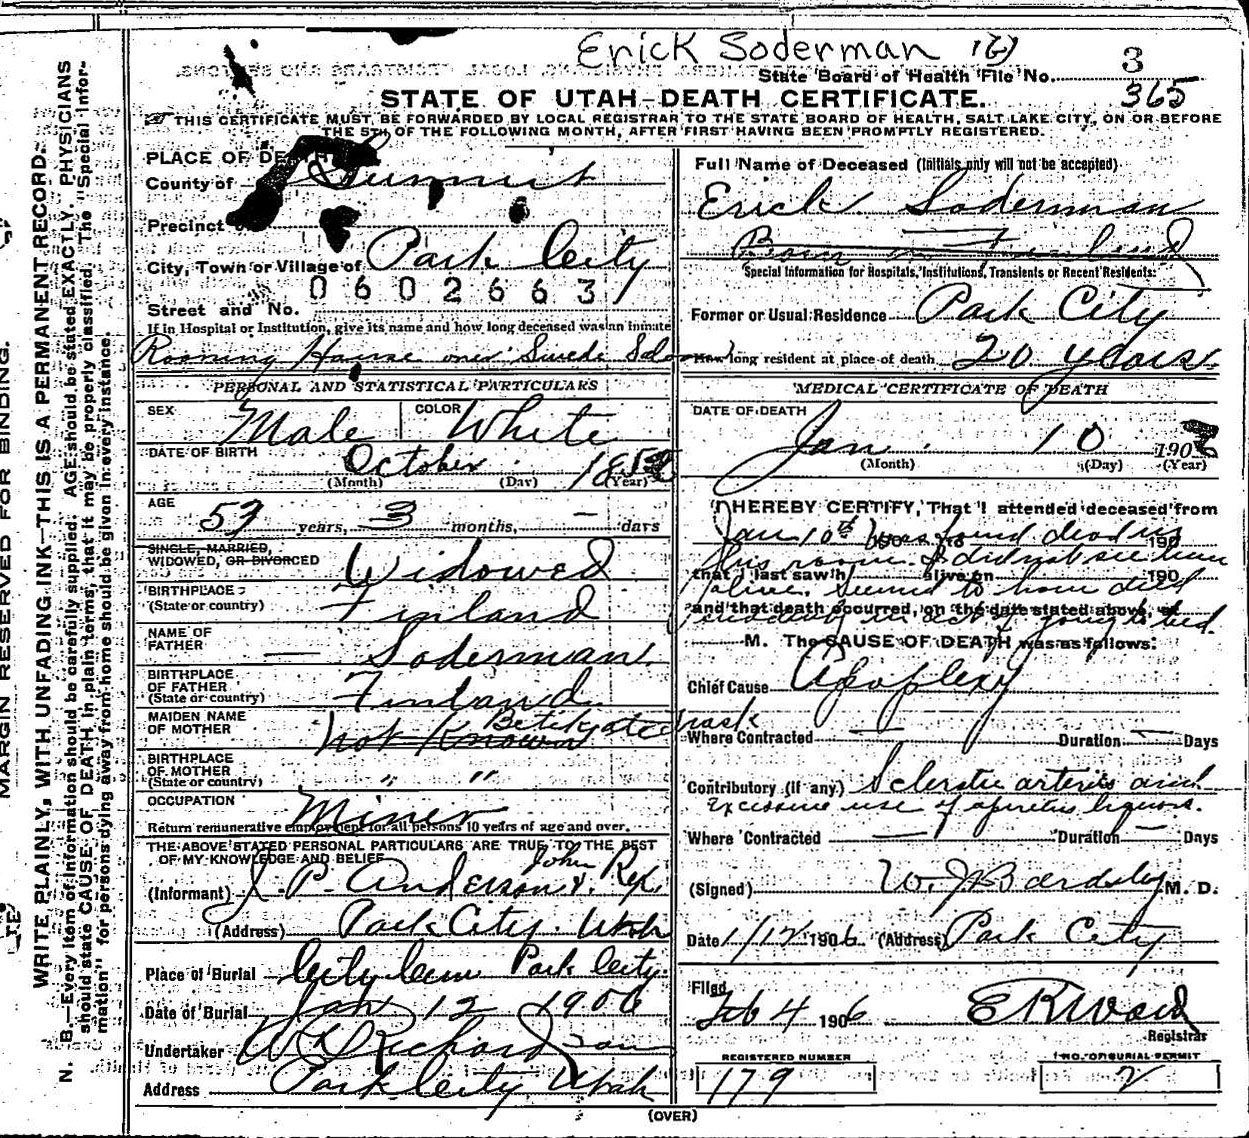 Erick Soderman
State Board of Health File No. 3
365
STATE OF UTAH-DEATH CERTIFICATE.
THIS CERTIFICATE MUST BE FORWARDED BY LOCAL REGISTRAR TO THE STATE BOARD OF HEALTH, SALT LAKE CITY, ON OR BEFORE
THE 5TH OF THE FOLLOWING MONTH, AFTER FIRST HAVING BEEN PROMPTLY REGISTERED.
MARGIN RESERVED FOR BINDING.
WRITE PLAINLY, WITH UNFADING INK—THIS IS A PERMANENT RECORD.
N. B.—Every item of information should be carefully supplied. AGE should be stated EXACTLY. PHYSICIANS
should state CAUSE OF DEATH in plain terms, that it may be properly classified. The "Special Infor-
mation" for persons dying away from home should be given in every instance.
PLACE OF DEATH
County of Summit
Precinct
City, Town or Village of Park City
0602663
Street and No.
If in Hospital or Institution, give its name and how long deceased was an inmate
Rooming House over Swede Saloon
PERSONAL AND STATISTICAL PARTICULARS
SEX Male COLOR White
DATE OF BIRTH October 185
(Month) (Day) (Year)
AGE 53 years, 3 months, - days
SINGLE, MARRIED,
WIDOWED, OR DIVORCED Widowed
BIRTHPLACE
(State or country) Finland
NAME OF
FATHER — Soderman
BIRTHPLACE
OF FATHER
(State or country) Finland
MAIDEN NAME
OF MOTHER Not Known
BIRTHPLACE
OF MOTHER
(State or country) " "
OCCUPATION Miner
Return remunerative employment for all persons 10 years of age and over.
THE ABOVE STATED PERSONAL PARTICULARS ARE TRUE TO THE BEST
OF MY KNOWLEDGE AND BELIEF
(Informant) J. P. Anderson & John Rex
(Address) Park City Utah
Place of Burial City Cem Park City
Date of Burial Jan 12 1906
Undertaker W Richardson
Address Park City Utah
Full Name of Deceased (Initials only will not be accepted)
Erick Soderman
Born in Finland
Special Information for Hospitals, Institutions, Transients or Recent Residents:
Former or Usual Residence Park City
How long resident at place of death 20 years
MEDICAL CERTIFICATE OF DEATH
DATE OF DEATH
Jan. 10 1906
(Month) (Day) (Year)
I HEREBY CERTIFY, That I attended deceased from
Jan 10th 190 was found dead in 190
his room. I did not see him
that I last saw h alive on 190
alive. Seemed to have died
and that death occurred, on the date stated above, at
suddenly in act of going to bed.
M. The CAUSE OF DEATH was as follows:
Chief Cause Apoplexy
Where Contracted — Duration — Days
Contributory (if any) Sclerotic arteries and
excessive use of spiritus liquors.
Where Contracted — Duration — Days
(Signed) W. J. Bardsley M. D.
Date 1/12 1906 (Address) Park City
Filed
Feb 4 1906 E R Ward
Registrar
REGISTERED NUMBER
179
NO. OF BURIAL PERMIT
2
(OVER)